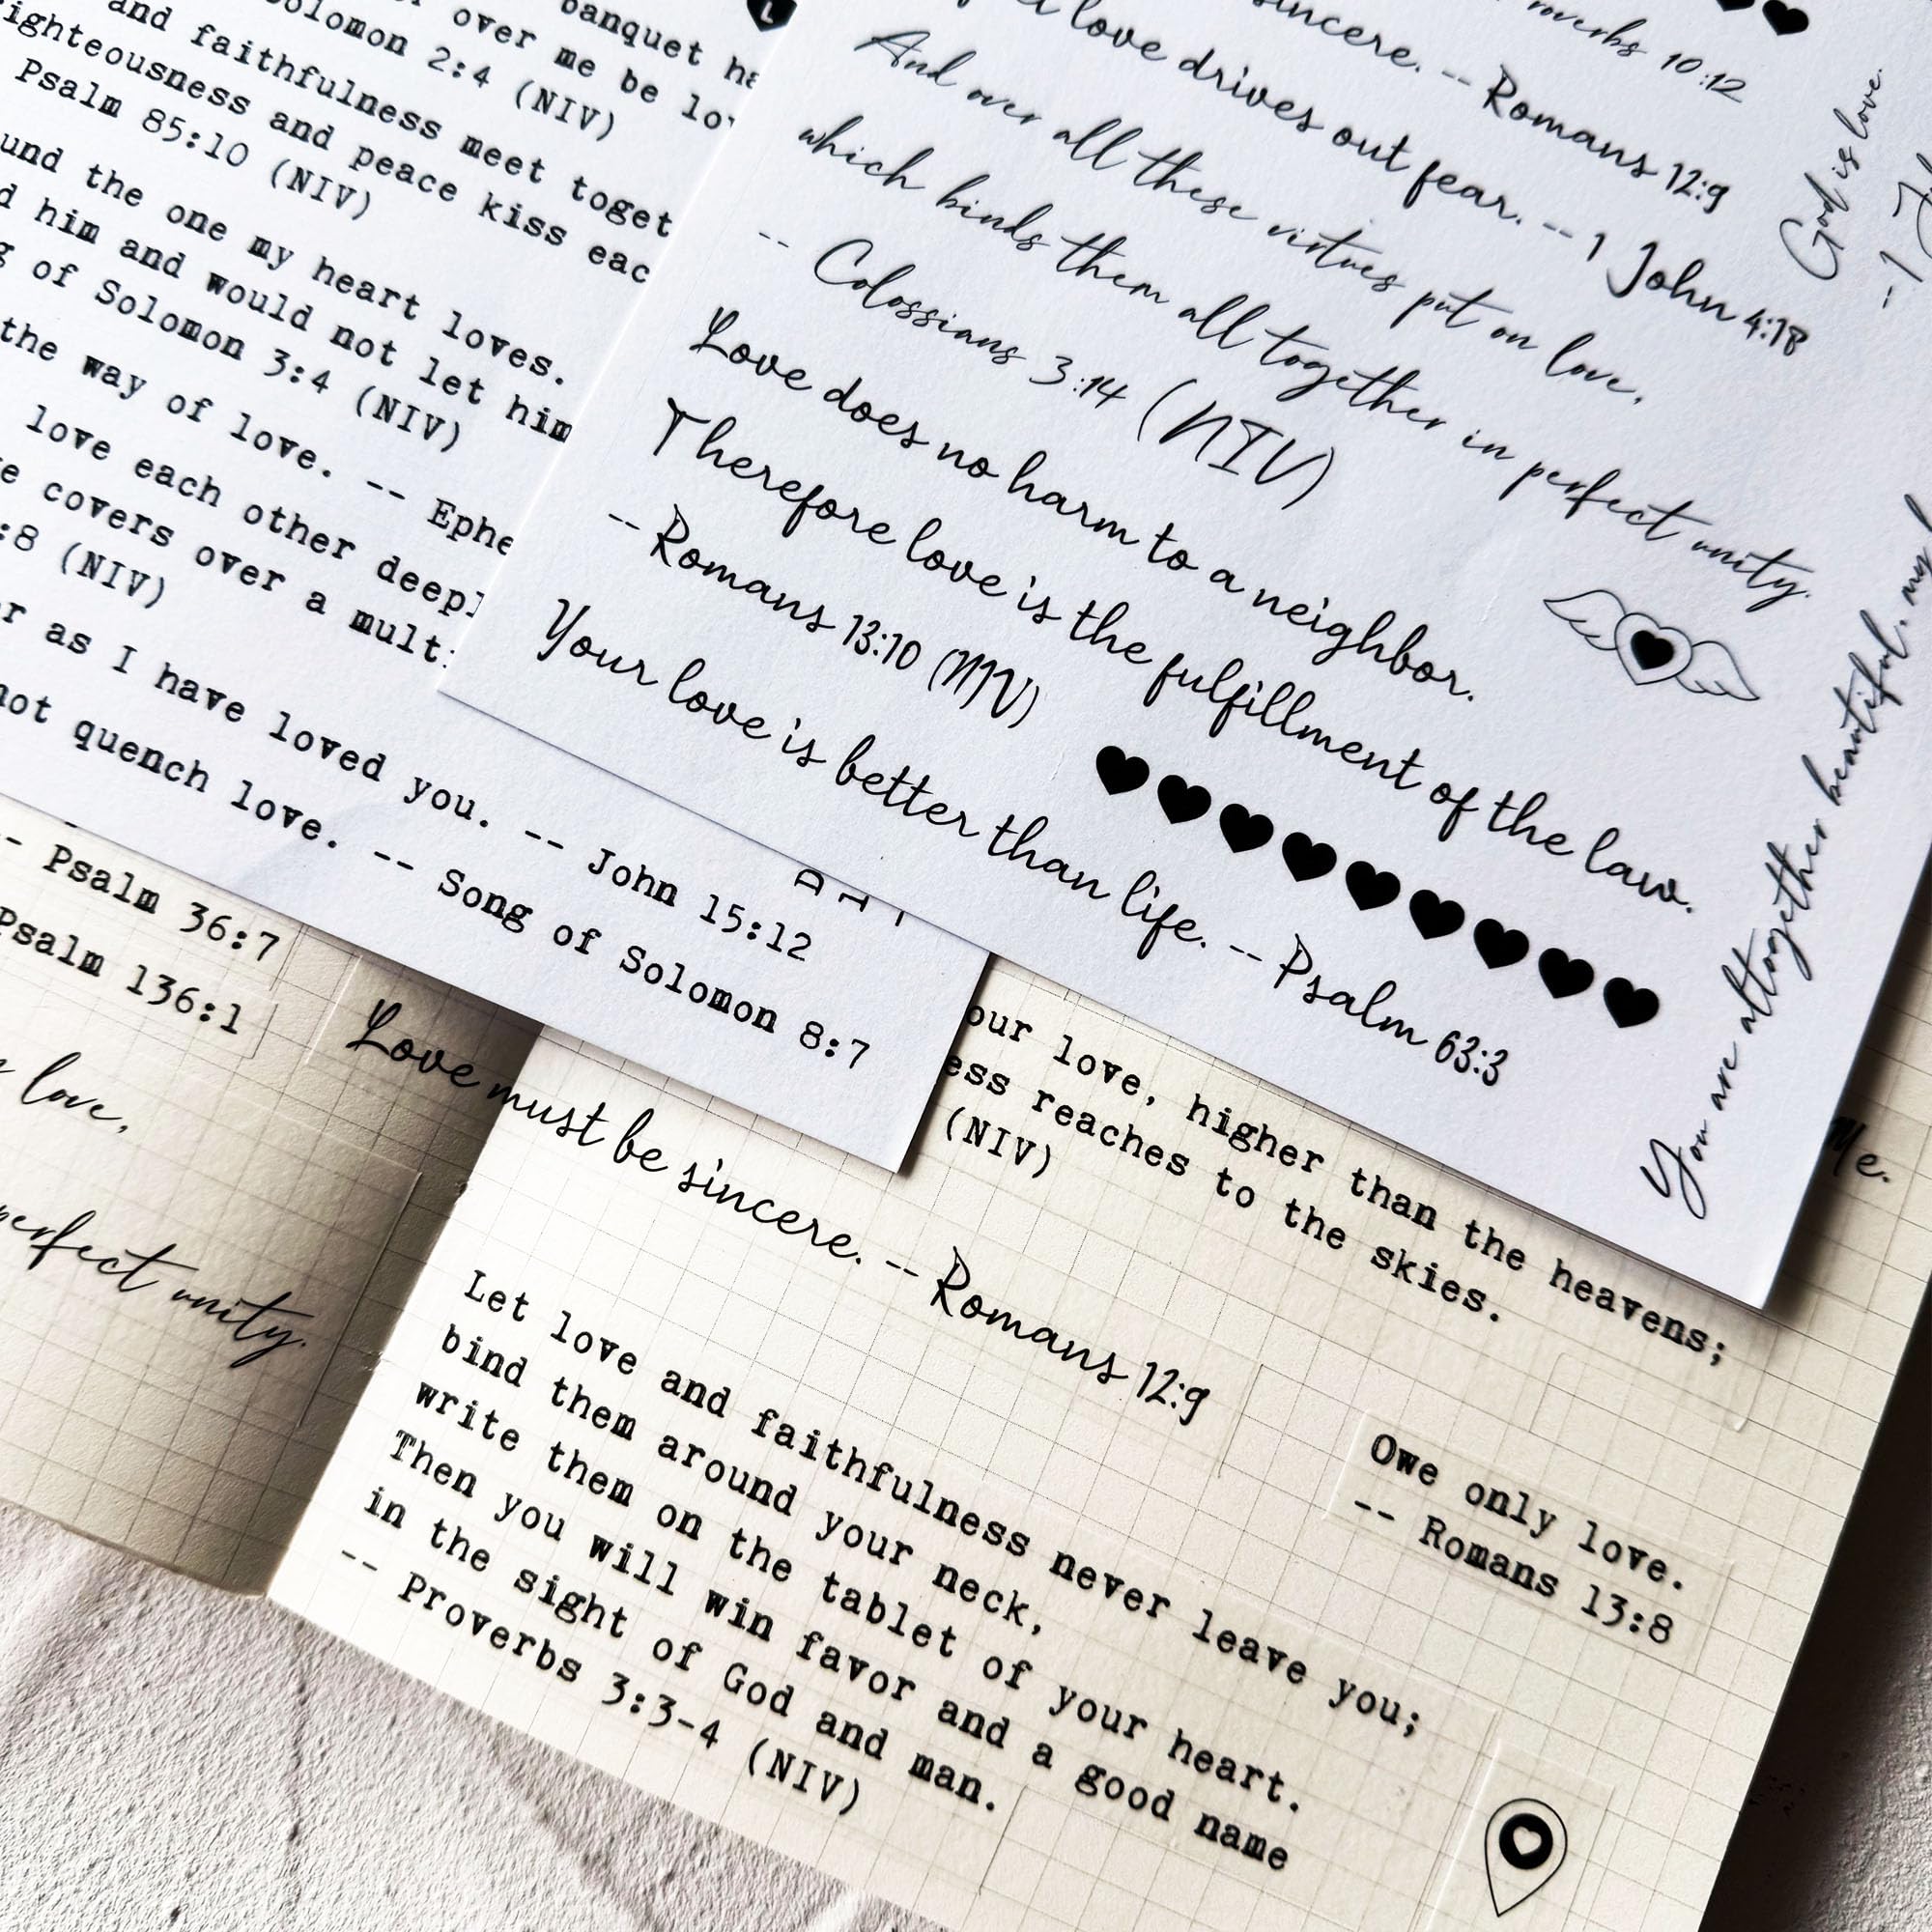 banquet
over me be
Solomon 2:4 (NIV)
and faithfulness meet
righteousness and peace kiss
Psalm 85:10 (NIV)
the one my heart loves.
him and would not let him
of Solomon 3:4 (NIV)
the way of love. --
love each other
covers over a
:8 (NIV)
as I have loved you. -- John 15:12
not quench love. -- Song of Solomon 8:7
L
Proverbs 10:12
sincere. -- Romans 12:9
love drives out fear. -- 1 John 4:18
And over all these virtues put on love,
which binds them all together in perfect unity.
-- Colossians 3:14 (NIV)
Love does no harm to a neighbor.
Therefore love is the fulfillment of the law.
-- Romans 13:10 (NIV)
Your love is better than life. -- Psalm 63:3
God is love.
-- 1
You are altogether beautiful, my
-- Psalm 36:7
Psalm 136:1
love,
perfect unity.
Love must be sincere. -- Romans 12:9
love, higher than the heavens;
reaches to the skies.
(NIV)
Me.
Let love and faithfulness never leave you;
bind them around your neck,
write them on the tablet of your heart.
Then you will win favor and a good name
in the sight of God and man.
-- Proverbs 3:3-4 (NIV)
Owe only love.
-- Romans 13:8